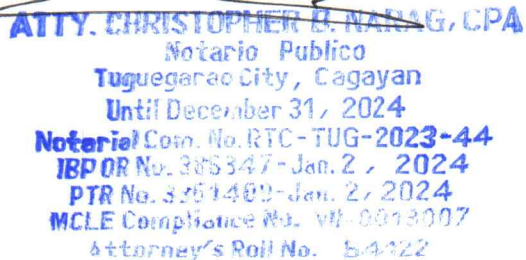 ATTY. CHRISTOPHER B. NARAG, CPA
Notario Publico
Tuguegarao City, Cagayan
Until December 31, 2024
Notarial Com. No. RTC-TUG-2023-44
IBP OR No. -Jan. 2, 2024
PTR No. -Jan. 2, 2024
MCLE Compliance No.
Attorney's Roll No.